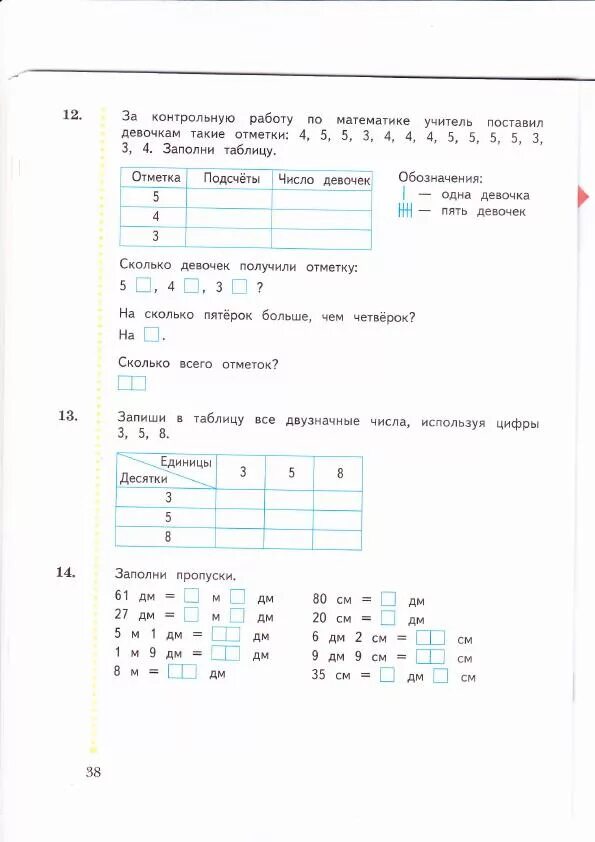 12.
За контрольную работу по математике учитель поставил
девочкам такие отметки: 4, 5, 5, 3, 4, 4, 4, 5, 5, 5, 5, 3,
3, 4. Заполни таблицу.
Отметка Подсчёты Число девочек
5
4
3
Обозначения:
— одна девочка
— пять девочек
Сколько девочек получили отметку:
5 , 4 , 3 ?
На сколько пятёрок больше, чем четвёрок?
На .
Сколько всего отметок?
13.
Запиши в таблицу все двузначные числа, используя цифры
3, 5, 8.
Единицы
Десятки
3 5 8
3
5
8
14.
Заполни пропуски.
61 дм = м дм
27 дм = м дм
5 м 1 дм = дм
1 м 9 дм = дм
8 м = дм
80 см = дм
20 см = дм
6 дм 2 см = см
9 дм 9 см = см
35 см = дм см
38